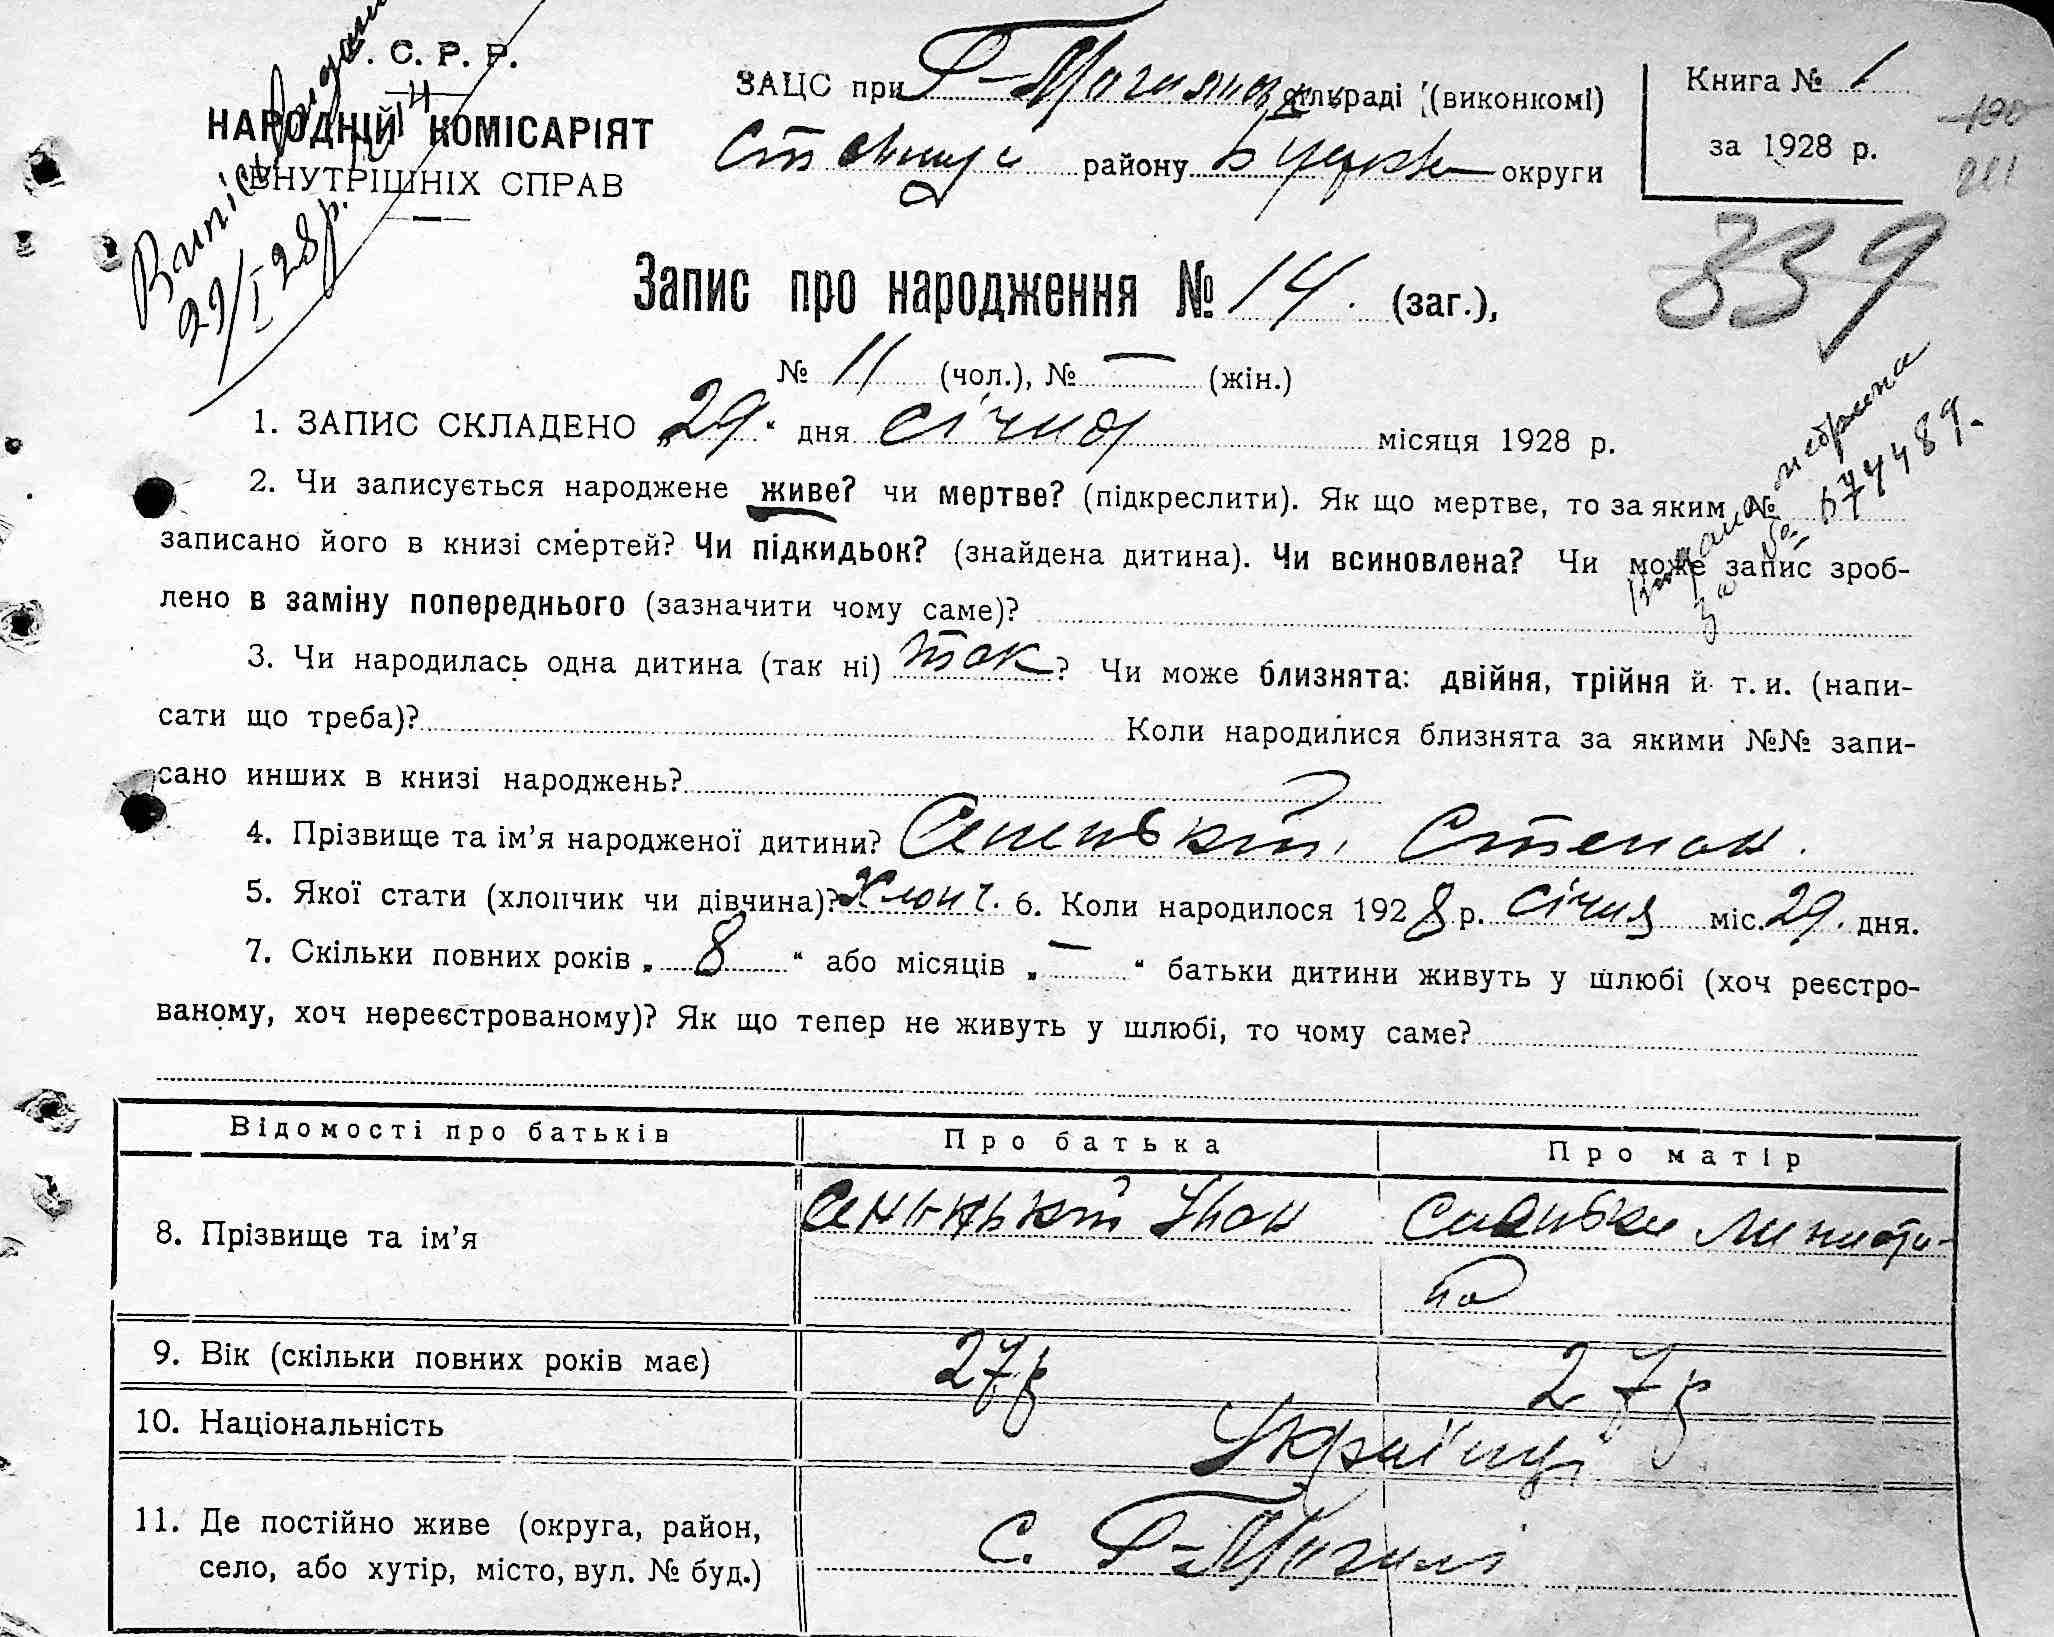 . С. Р. Р.
НАРОДНІЙ КОМІСАРІЯТ
ВНУТРІШНІХ СПРАВ
Випис видани
29/I 28 р.
ЗАЦС при Р-Могилянськ сільраді (виконкомі)
району округи
Книга № 1
за 1928 р.
339
Запис про народження № 14. (заг.),
№ 11 (чол.), № — (жін.)
1. ЗАПИС СКЛАДЕНО „29“ дня січня місяця 1928 р.
2. Чи записується народжене живе? чи мертве? (підкреслити). Як що мертве, то за яким №
записано його в книзі смертей? Чи підкидьок? (знайдена дитина). Чи всиновлена? Чи може запис зроб-
лено в заміну попереднього (зазначити чому саме)?
3. Чи народилась одна дитина (так ні) так? Чи може близнята: двійня, трійня й т. и. (напи-
сати що треба)? Коли народилися близнята за якими №№ запи-
сано инших в книзі народжень?
4. Прізвище та ім’я народженої дитини? Степан.
5. Якої стати (хлопчик чи дівчина)? Хлопч. 6. Коли народилося 1928 р. січня міс. 29. дня.
7. Скільки повних років „8“ або місяців „—“ батьки дитини живуть у шлюбі (хоч реєстро-
ваному, хоч нереєстрованому)? Як що тепер не живуть у шлюбі, то чому саме?
Відомості про батьків Про батька Про матір
8. Прізвище та ім’я Іван
9. Вік (скільки повних років має) 27 р 27 р
10. Національність Українці
11. Де постійно живе (округа, район,
село, або хутір, місто, вул. № буд.) С. Р-Могилі